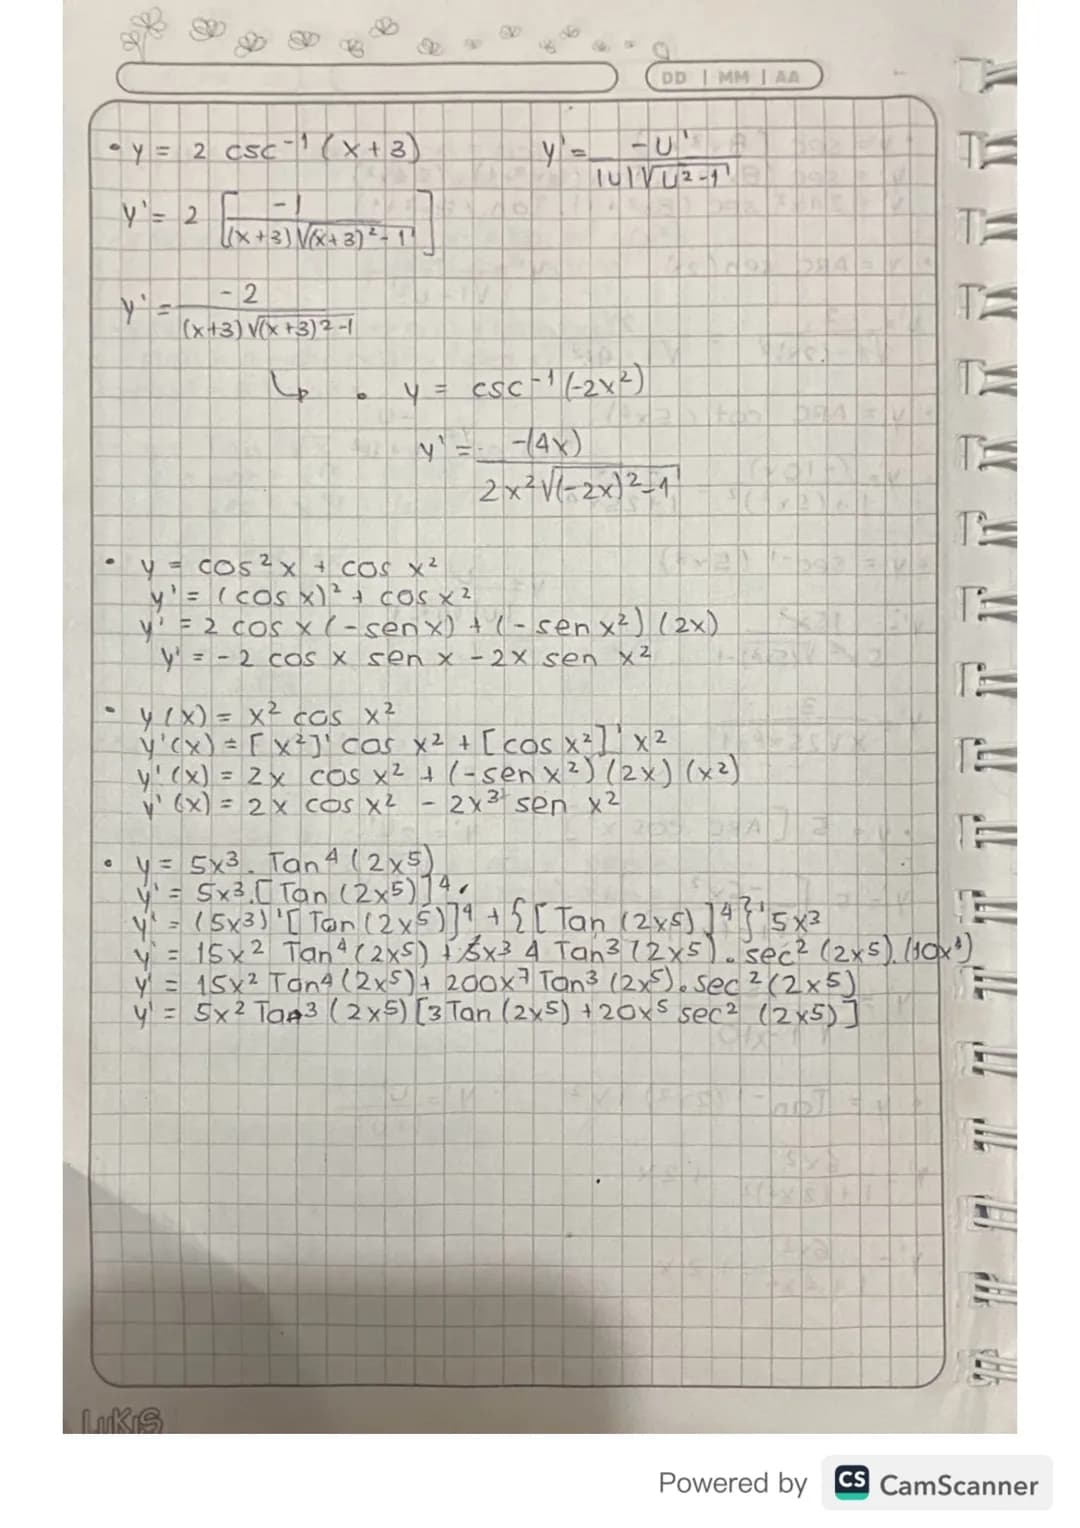 DD | MM | AA
• y = 2 csc⁻¹ (x+3) y' = -U' / |U|√U²-1
y' = 2 [ -1 / (x+3)√(x+3)²-1 ]
y' = -2 / (x+3)√(x+3)²-1
↳ • y = csc⁻¹ (-2x²)
y' = -(4x) / 2x²√(-2x)²-1
• y = cos²x + cos x²
y' = (cos x)² + cos x²
y' = 2 cos x (-sen x) + (-sen x²) (2x)
y' = -2 cos x sen x - 2x sen x²
• y(x) = x² cos x²
y'(x) = [x²]' cos x² + [cos x²]' x²
y'(x) = 2x cos x² + (-sen x²) (2x) (x²)
y'(x) = 2x cos x² - 2x³ sen x²
• y = 5x³. Tan⁴ (2x5)
y' = 5x³.[Tan (2x5)]⁴.
y' = (5x³)'[Tan(2x5)]⁴ + {[Tan (2x5)]⁴}'5x³
y' = 15x² Tan⁴(2x5) + 5x³ 4 Tan³ (2x5). sec² (2x5).(10x⁴)
y' = 15x² Tan4(2x5)+ 200x⁷ Tan³ (2x5). sec²(2x5)
y' = 5x² Tan3 (2x5) [3Tan (2x5) + 20x⁵ sec² (2x5)]
LUKIS
Powered by CS CamScanner